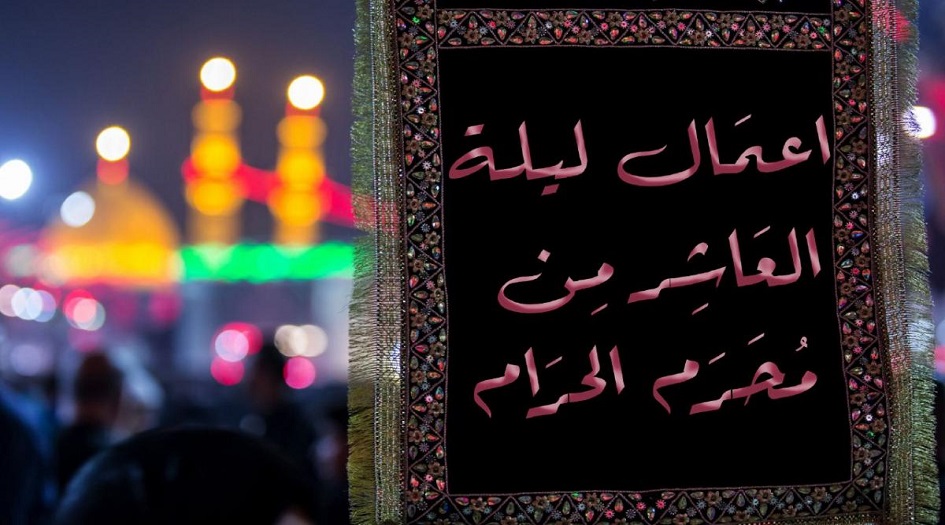 اعمَال ليلة
العَاشِر مِن
مُحَرَم الحَرَام